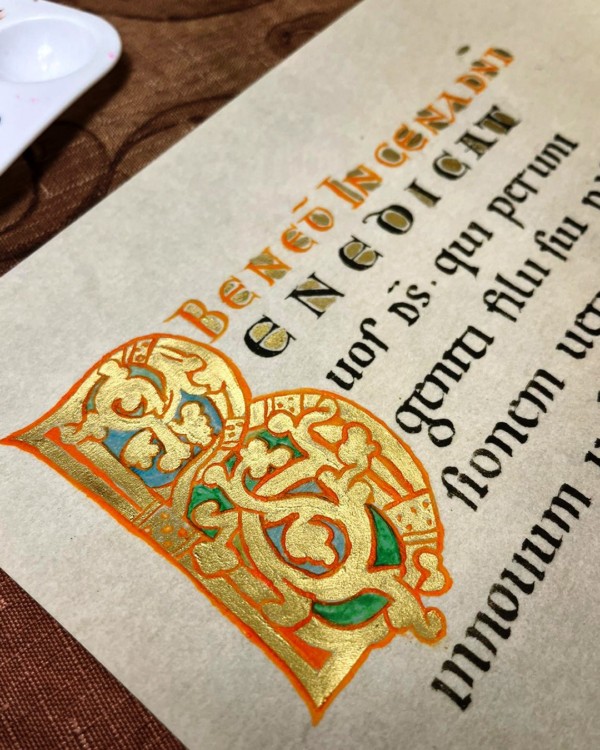 BENED̄ IN CENA DN̄I
BENEDICAT
uoſ Ds̄. qui per uni
geniti filii ſui
ſionem
innouum